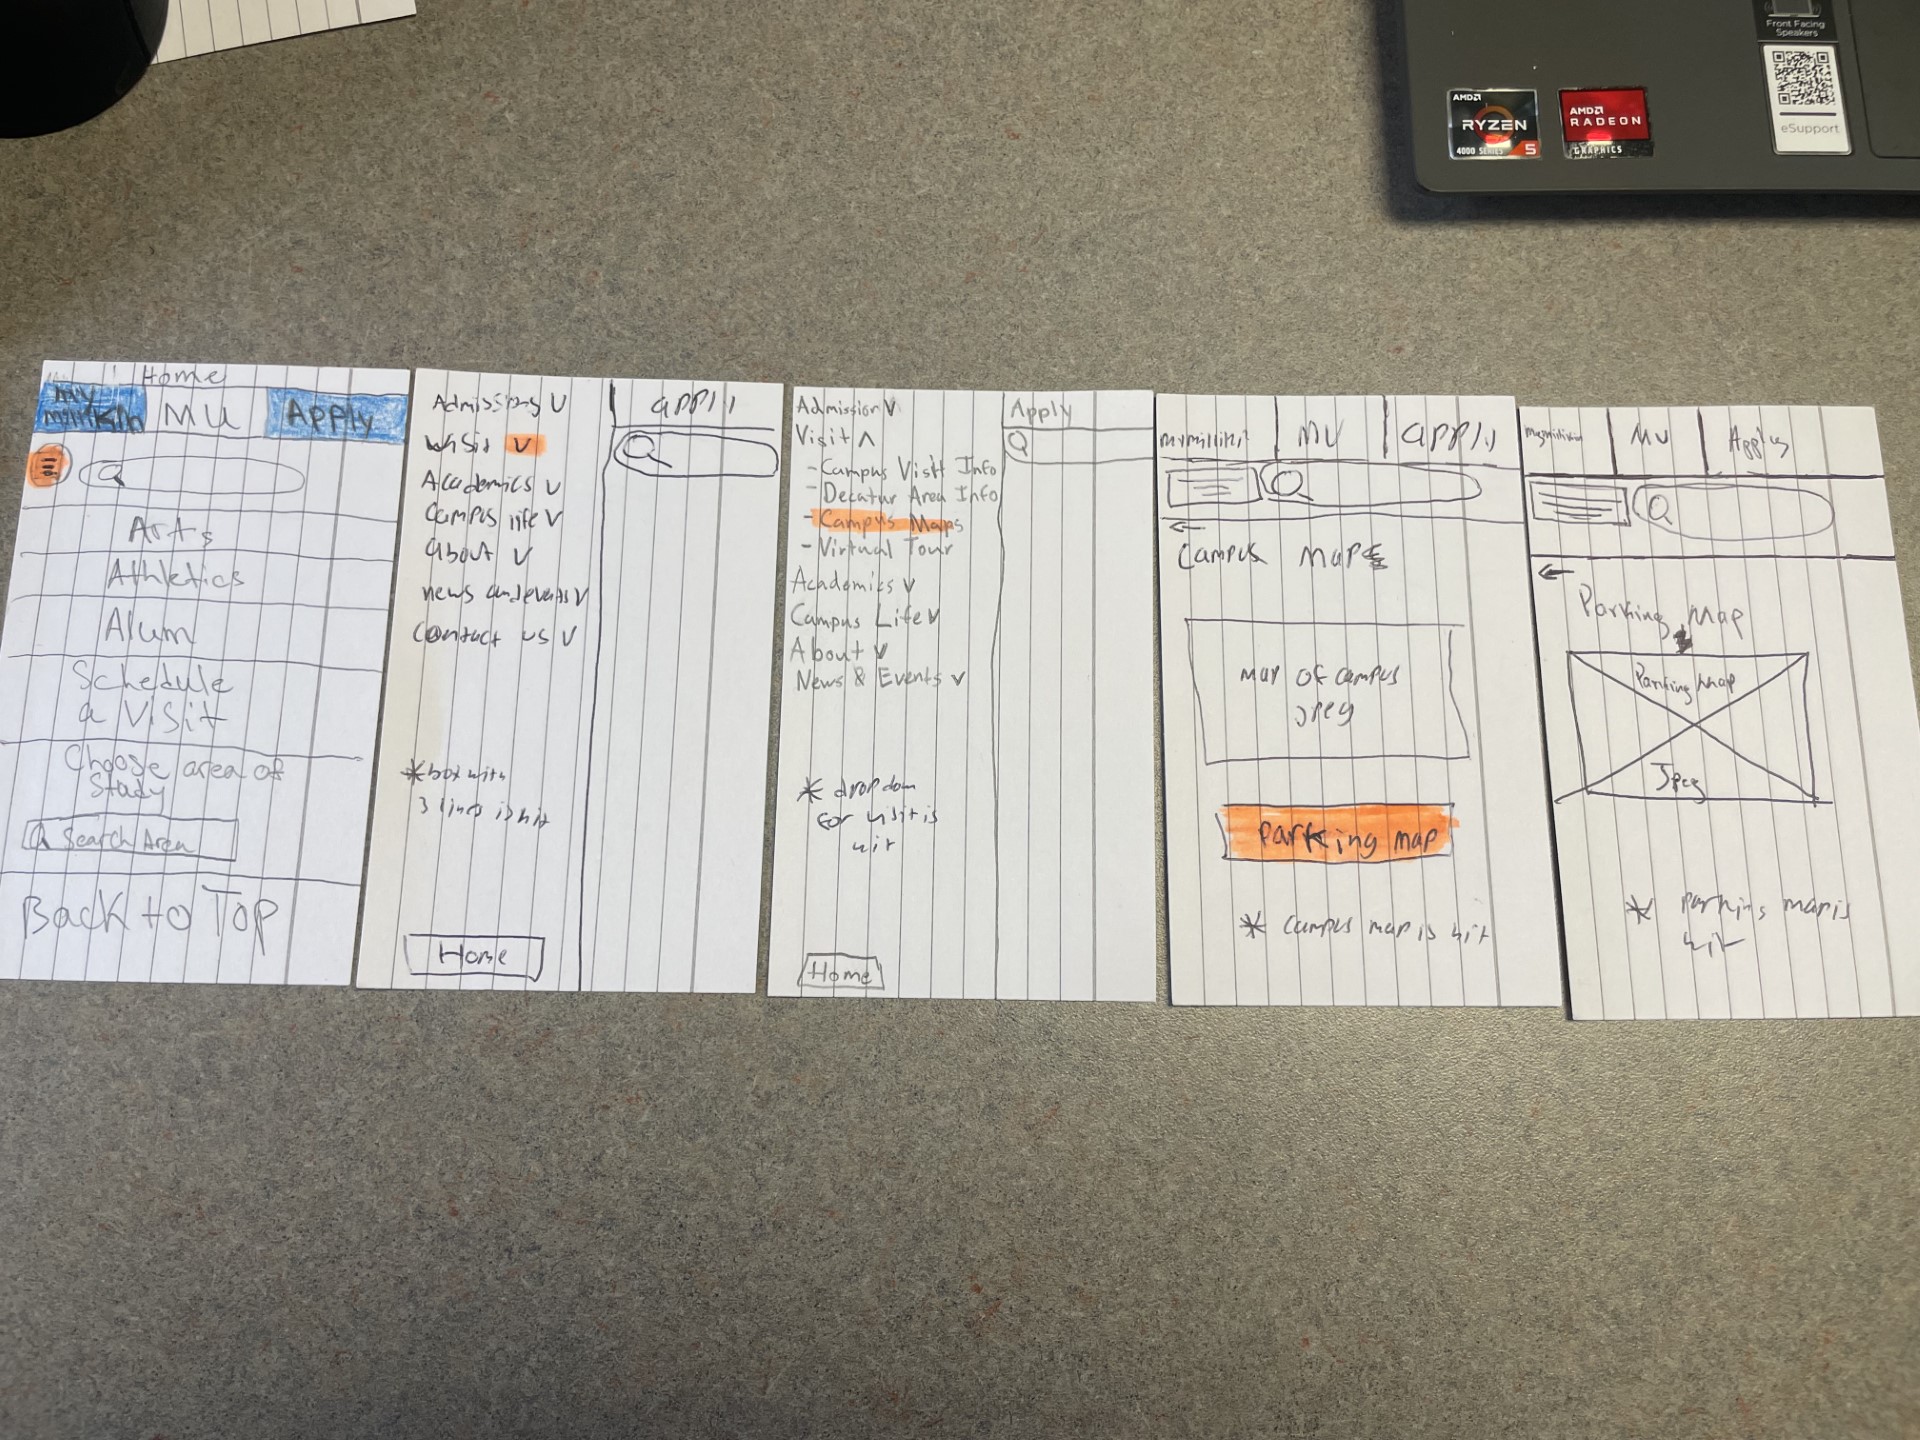 Front Facing
Speakers
AMD
RYZEN
4000 SERIES 5
AMD
RADEON
GRAPHICS
eSupport
Home
My
MU
Apply
Arts
Athletics
Alum
Schedule
a Visit
Choose area of
Study
Search Area
Back to Top
Admissions V
Visit V
Academics V
Campus life V
about V
news and events V
Contact us V
* box with
3 lines is hit
Home
Admission V
Visit Λ
- Campus Visit Info
- Decatur Area Info
- Campus Maps
- Virtual Tour
Academics V
Campus Life V
About V
News & Events V
* drop down
for visit is
hit
Home
Apply
MU
Campus Maps
Map of campus
Jpeg
Parking map
* Campus map is hit
MU
Parking Map
Parking Map
Jpeg
* Parking map is
hit